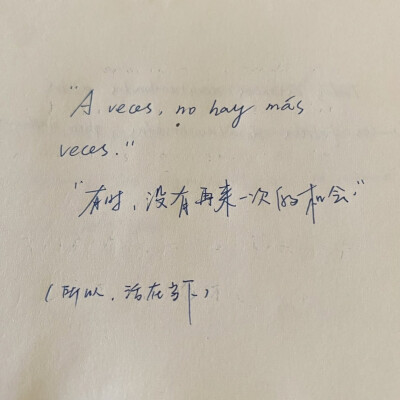 "A veces, no hay más
veces."
"有时，没有再来一次的机会"
（所以，活在当下）